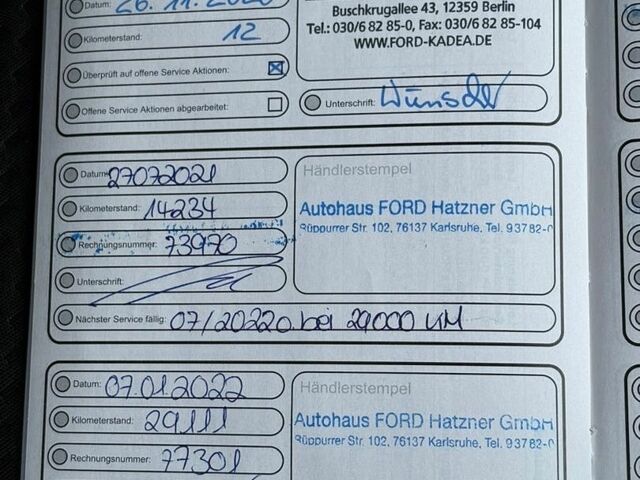 Datum: 26.11.2020
Buschkrugallee 43, 12359 Berlin
Tel.: 030/6 82 85-0, Fax: 030/6 82 85-104
WWW.FORD-KADEA.DE
Kilometerstand: 12
Überprüft auf offene Service Aktionen:
Offene Service Aktionen abgearbeitet:
Unterschrift: Wünsche
Datum: 27072021
Händlerstempel
Kilometerstand: 14234
Autohaus FORD Hatzner GmbH
Rüppurrer Str. 102, 76137 Karlsruhe, Tel. 93782-0
Rechnungsnummer: 73970
Unterschrift:
Nächster Service fällig: 07/2022 o. bei 29000 KM
Datum: 07.01.2022
Händlerstempel
Kilometerstand: 29111
Autohaus FORD Hatzner GmbH
Rüppurrer Str. 102, 76137 Karlsruhe, Tel. 93782-0
Rechnungsnummer: 77301